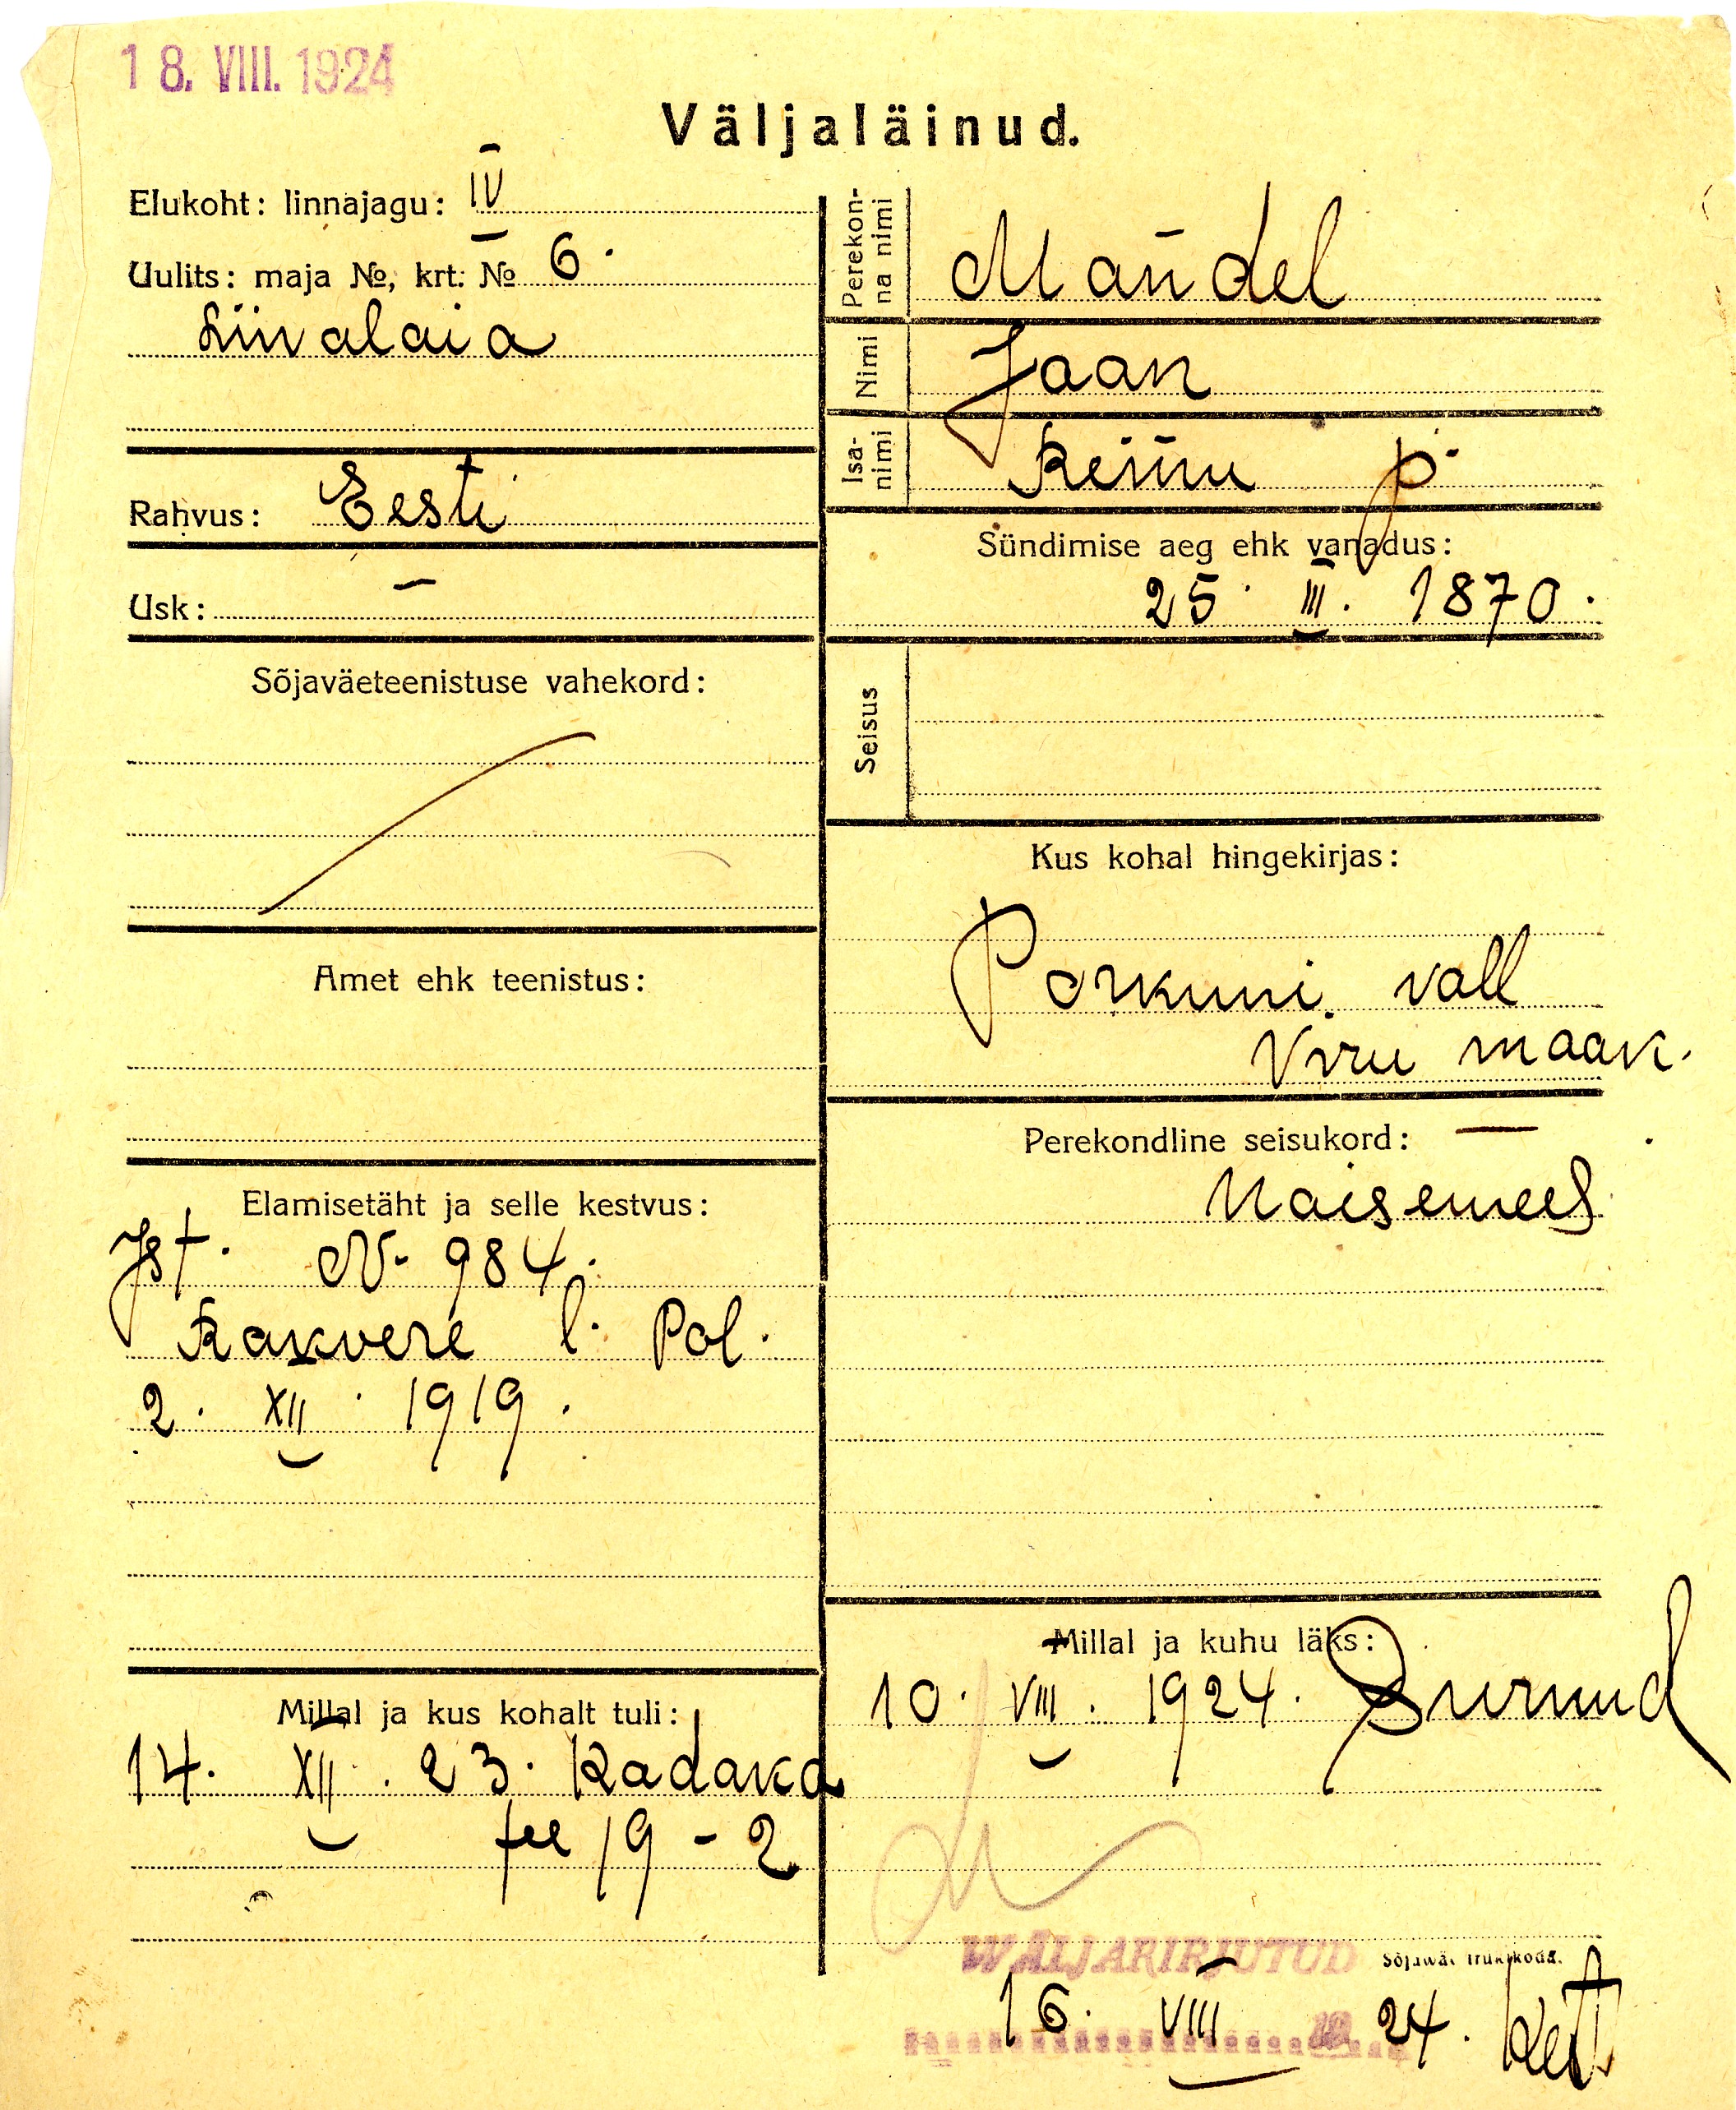 18. VIII. 1924
Väljaläinud.
Elukoht: linnajagu: IV
Uulits: maja №, krt: № 6.
Liivalaia
Rahvus: Eesti
Usk: —
Sõjaväeteenistuse vahekord:
Amet ehk teenistus:
Elamisetäht ja selle kestvus:
Ist. N- 984.
Rakvere l. Pol.
2. XII. 1919.
Millal ja kus kohalt tuli:
14. XII. 23. Kadaka
tee 19-2
Perekon-
na nimi
Mandel
Nimi
Jaan
Isa-
nimi
Reinu p.
Sündimise aeg ehk vanadus:
25. III. 1870.
Seisus
Kus kohal hingekirjas:
Porkuni vall
Viru maak.
Perekondline seisukord: —
Naisemees
Millal ja kuhu läks:
10. VIII. 1924. Surnud
WÄLJAKIRJUTUD
Sõjawäe trükikoda.
16. VIII 24.